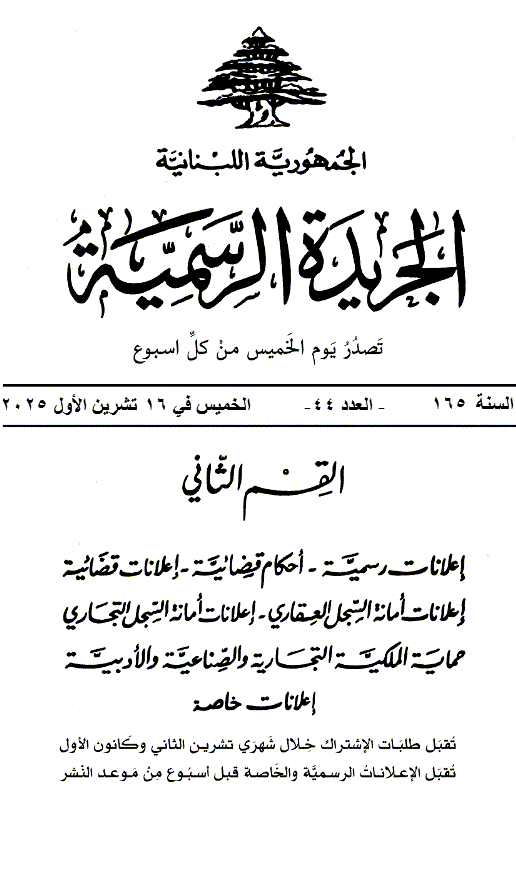 الجمهورية اللبنانية
الجريدة الرسمية
تَصدُرُ يَوم الخَميس مِنْ كلِّ اسبوع
السنة ١٦٥ - العدد ٤٤- الخميس في ١٦ تشرين الأول ٢٠٢٥
القِسْم الثّاني
إعلانات رسميَّة - أحكام قضائيَّة - إعلانات قضائية
إعلانات أمانة السِّجل العقاري - إعلانات أمانة السِّجل التجاري
حماية الملكيَّة التجارية والصِّناعيَّة والأدبيَّة
إعلانات خاصة
تُقبَل طلبَات الإشتراك خِلال شَهرَي تشرين الثاني وكَانون الأول
تُقبَل الإعلاناتُ الرسميَّة والخَاصة قبل أسبُوع مِنْ مَوعد النَشر